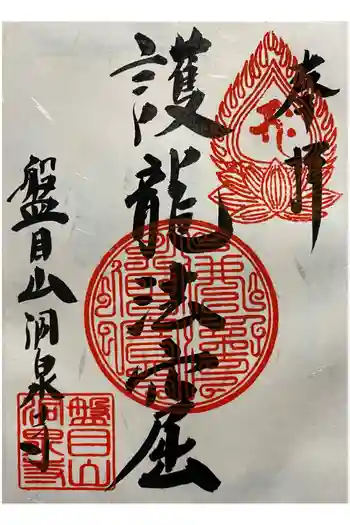 奉拝
護龍法
盤目山洞泉寺
盤目山
洞泉寺